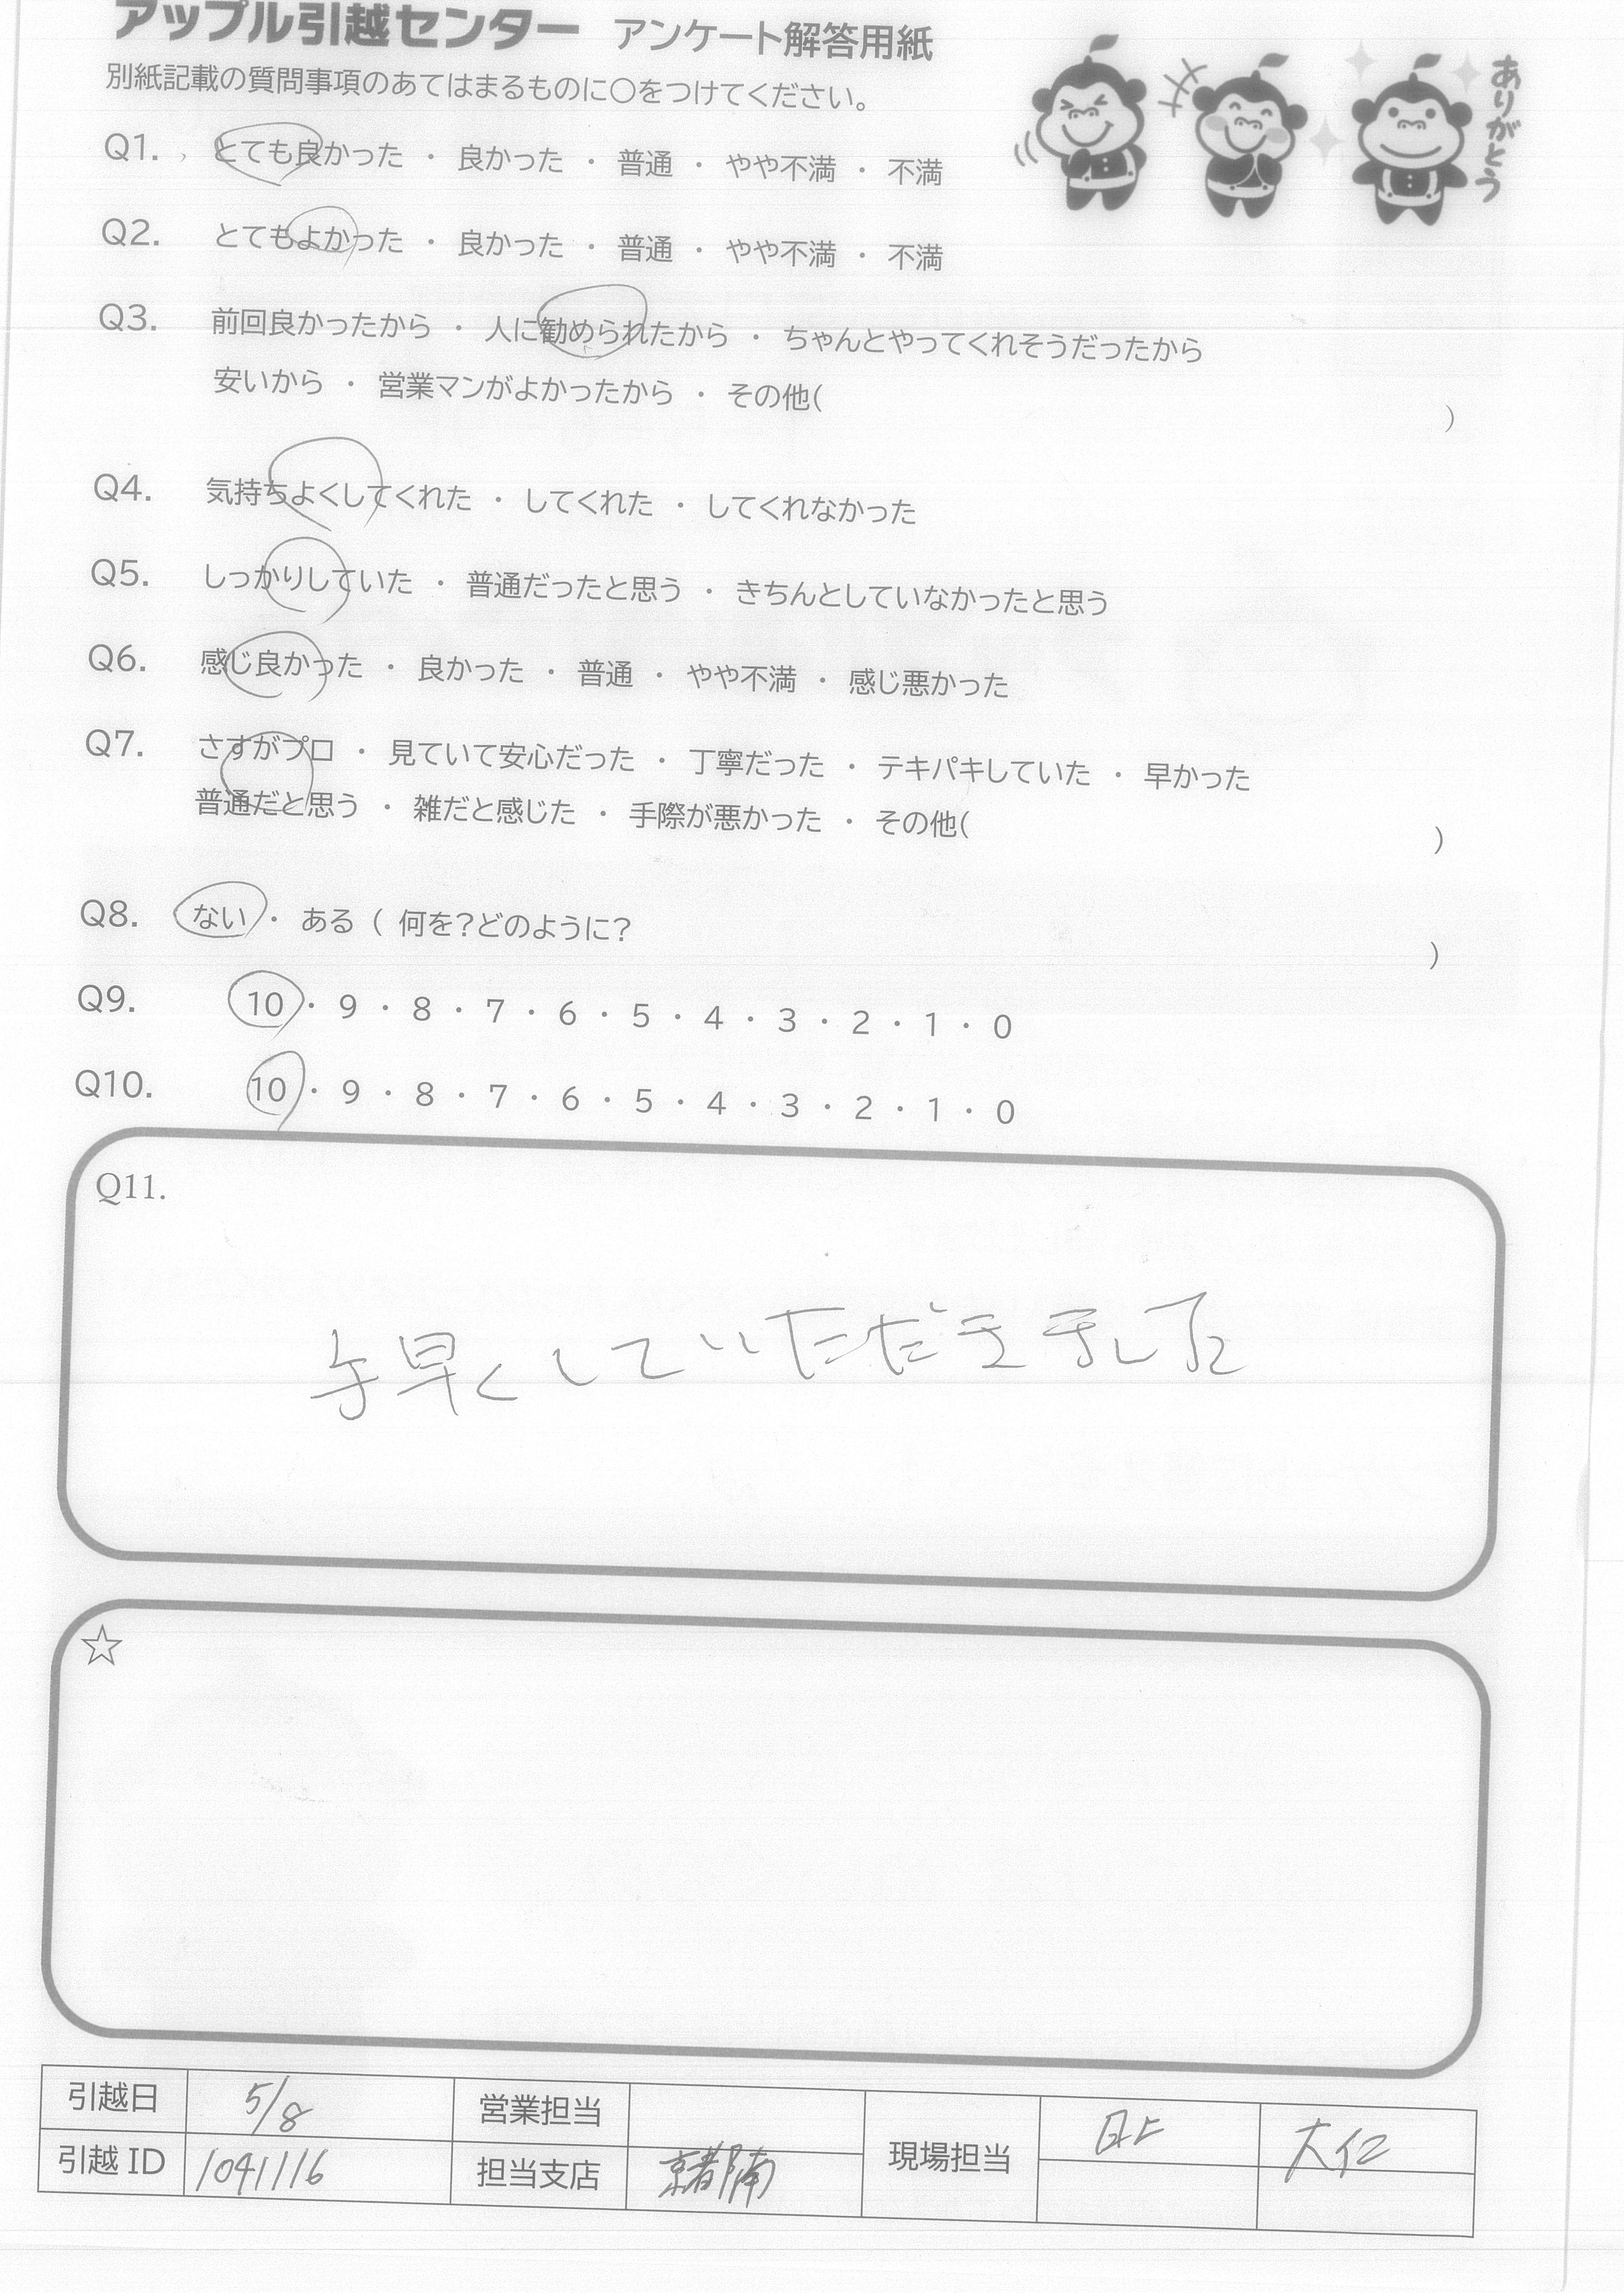 アップル引越センター アンケート解答用紙
別紙記載の質問事項のあてはまるものに○をつけてください。
ありがとう
Q1. とても良かった ・ 良かった ・ 普通 ・ やや不満 ・ 不満
Q2. とてもよかった ・ 良かった ・ 普通 ・ やや不満 ・ 不満
Q3. 前回良かったから ・ 人に勧められたから ・ ちゃんとやってくれそうだったから
安いから ・ 営業マンがよかったから ・ その他( )
Q4. 気持ちよくしてくれた ・ してくれた ・ してくれなかった
Q5. しっかりしていた ・ 普通だったと思う ・ きちんとしていなかったと思う
Q6. 感じ良かった ・ 良かった ・ 普通 ・ やや不満 ・ 感じ悪かった
Q7. さすがプロ ・ 見ていて安心だった ・ 丁寧だった ・ テキパキしていた ・ 早かった
普通だと思う ・ 雑だと感じた ・ 手際が悪かった ・ その他( )
Q8. ない ・ ある ( 何を?どのように? )
Q9. 10 ・ 9 ・ 8 ・ 7 ・ 6 ・ 5 ・ 4 ・ 3 ・ 2 ・ 1 ・ 0
Q10. 10 ・ 9 ・ 8 ・ 7 ・ 6 ・ 5 ・ 4 ・ 3 ・ 2 ・ 1 ・ 0
Q11.
手早くしていただきました
☆
引越日 5/8 営業担当
現場担当 大仁
引越 ID 1041116 担当支店 京都南